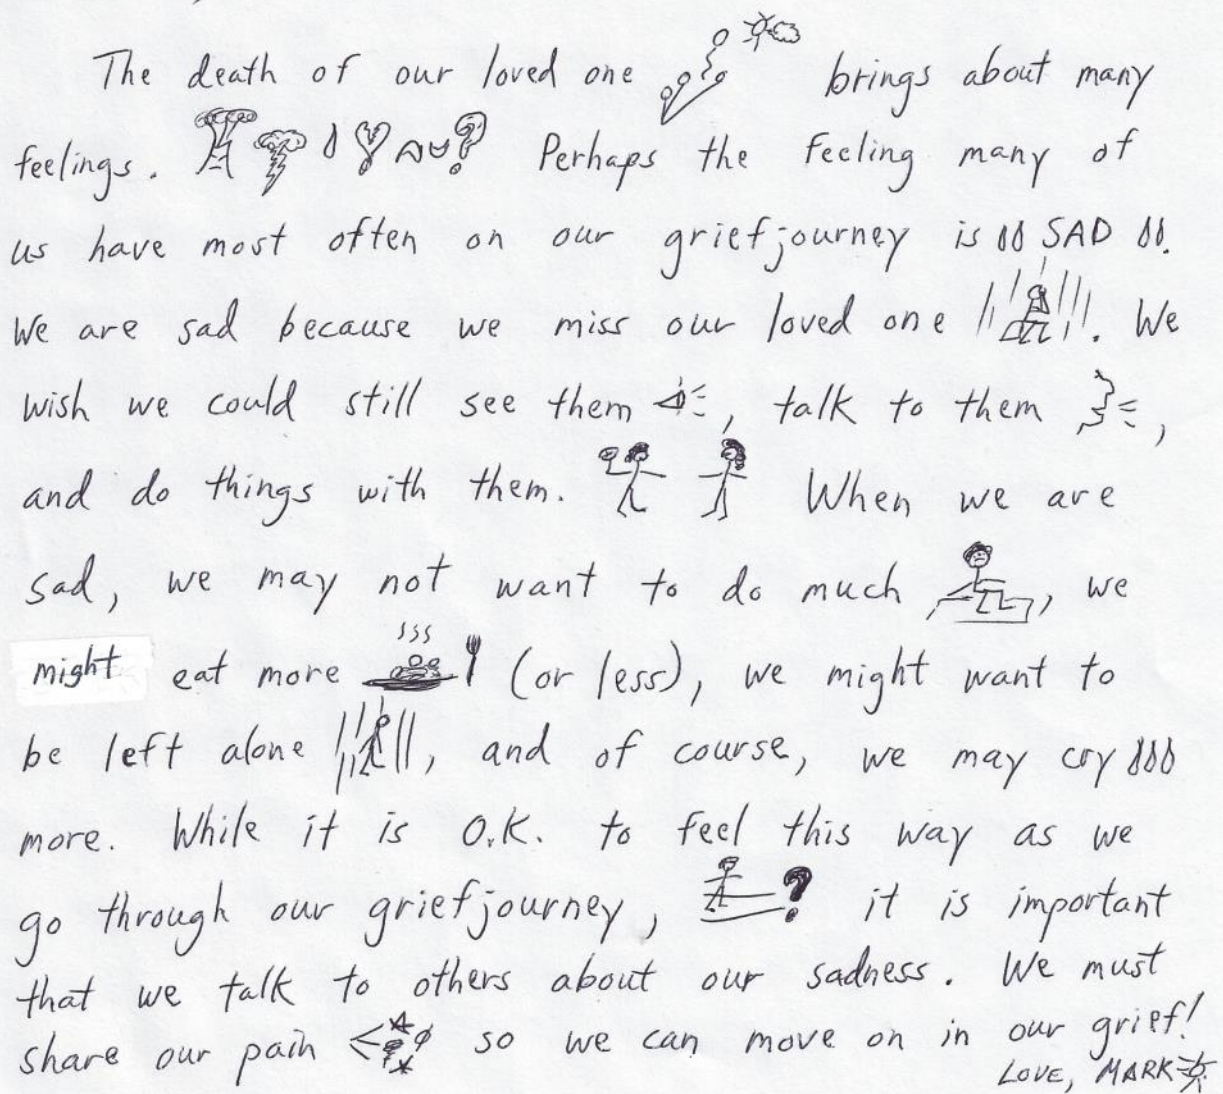 The death of our loved one brings about many
feelings. Perhaps the feeling many of
us have most often on our griefjourney is SAD.
We are sad because we miss our loved one. We
wish we could still see them, talk to them,
and do things with them. When we are
sad, we may not want to do much, we
might eat more (or less), we might want to
be left alone, and of course, we may cry
more. While it is O.K. to feel this way as we
go through our griefjourney, ? it is important
that we talk to others about our sadness. We must
share our pain so we can move on in our grief!
LOVE, MARK